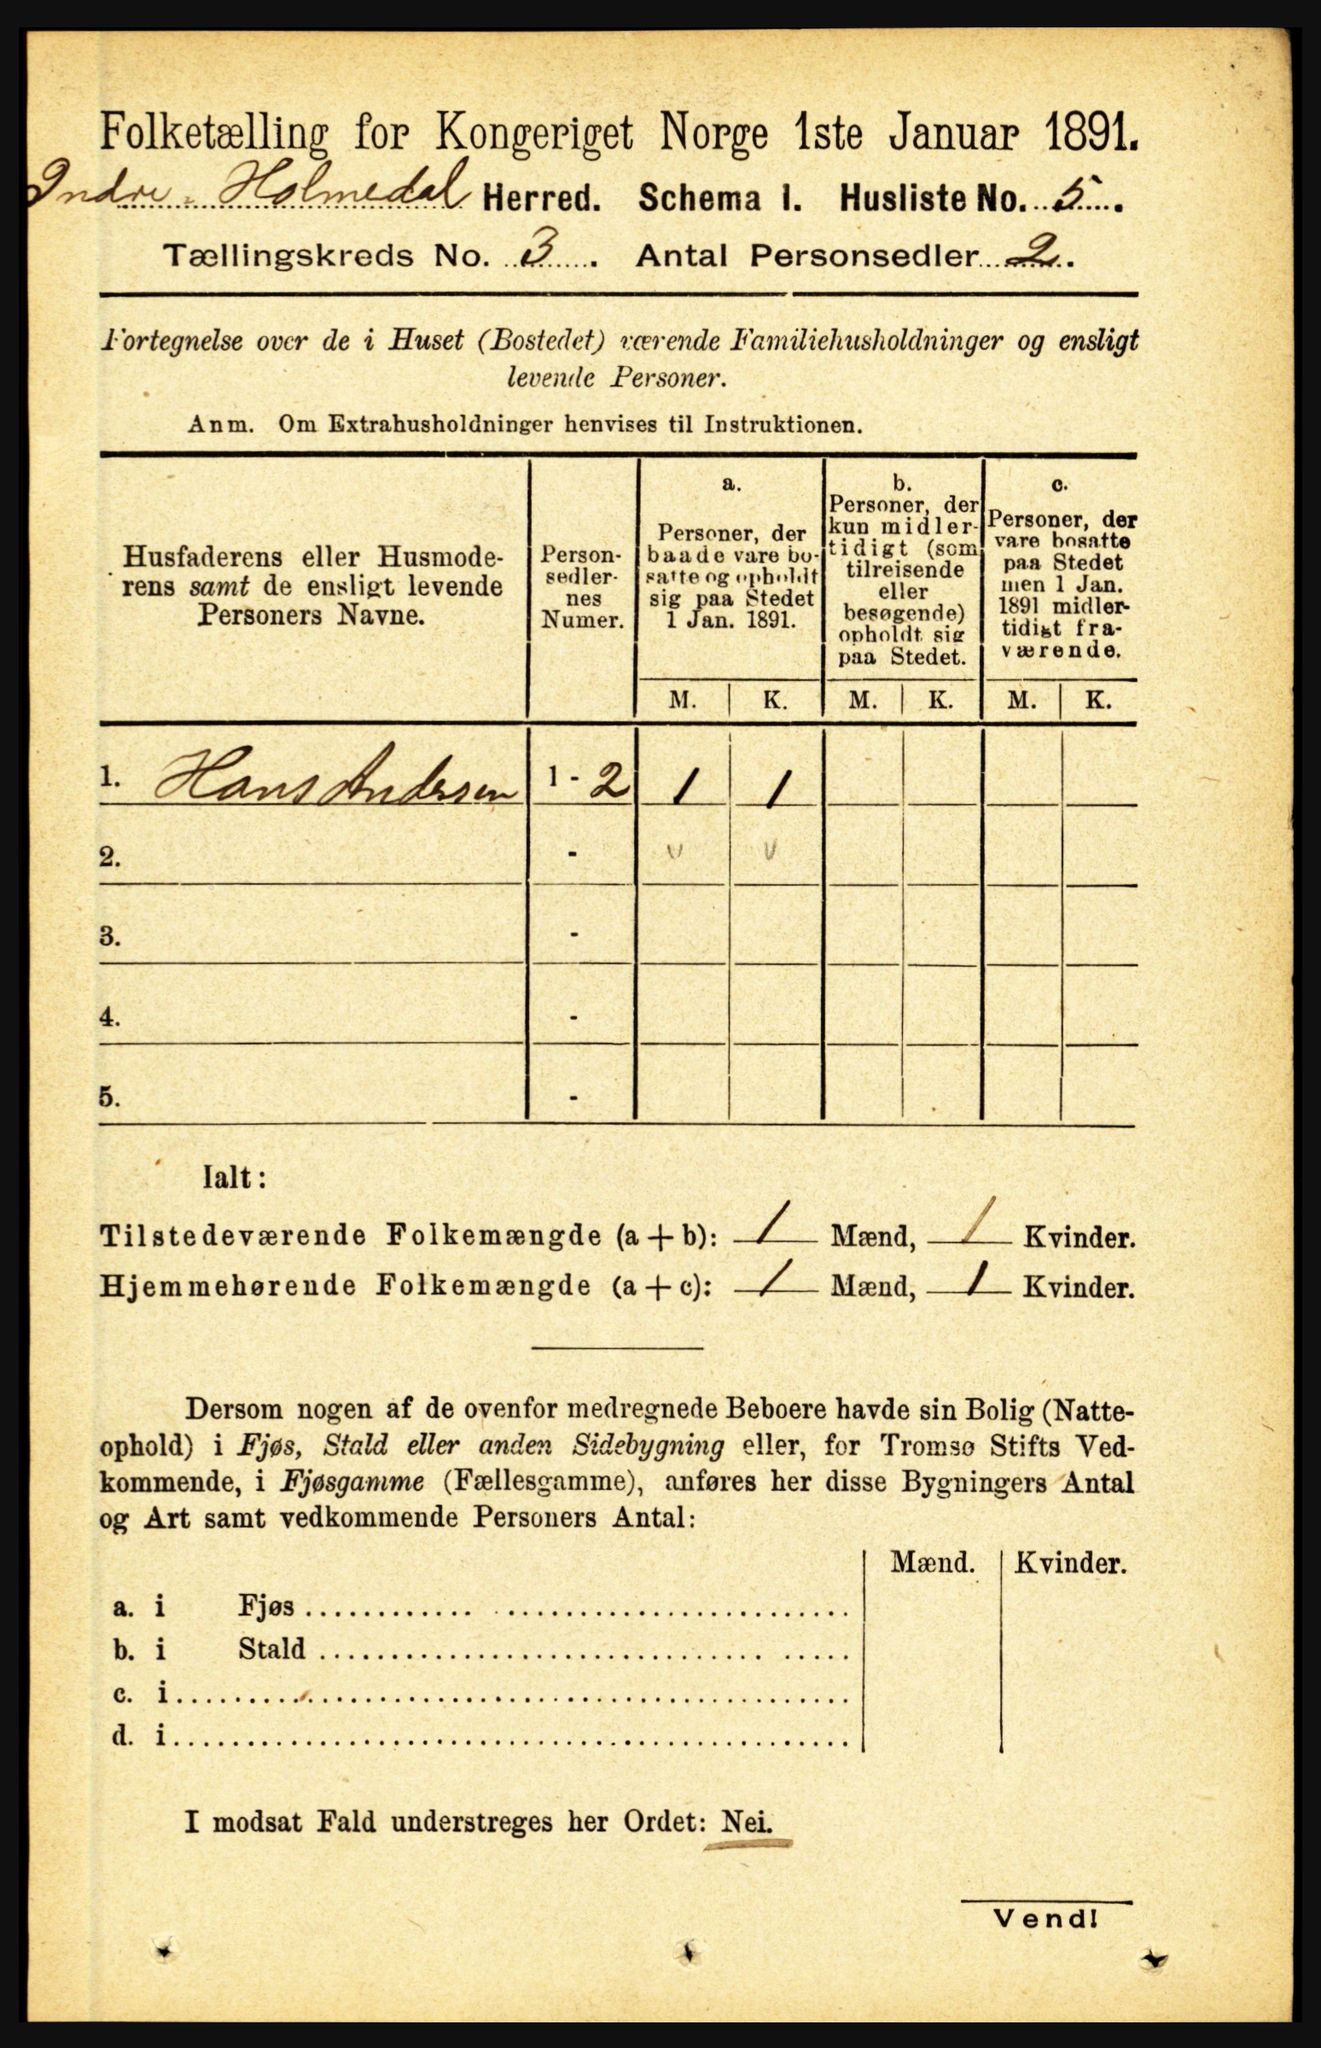 Folketælling for Kongeriget Norge 1ste Januar 1891.
Indre Holmedal Herred. Schema I. Husliste No. 5.
Tællingskreds No. 3. Antal Personsedler 2.
Fortegnelse over de i Huset (Bostedet) værende Familiehusholdninger og ensligt
levende Personer.
Anm. Om Extrahusholdninger henvises til Instruktionen.
Husfaderens eller Husmode-
rens samt de ensligt levende
Personers Navne.
Person-
sedler-
nes
Numer.
a.
Personer, der
baade vare bo-
satte og opholdt
sig paa Stedet
1 Jan. 1891.
b.
Personer, der
kun midler-
tidigt (som
tilreisende
eller
besøgende)
opholdt sig
paa Stedet.
c.
Personer, der
vare bosatte
paa Stedet
men 1 Jan.
1891 midler-
tidigt fra-
værende.
M. K. M. K. M. K.
1. Hans Andersen 1 - 2 1 1
2. - v v
3. -
4. -
5. -
Ialt:
Tilstedeværende Folkemængde (a + b): 1 Mænd, 1 Kvinder.
Hjemmehørende Folkemængde (a + c): 1 Mænd, 1 Kvinder.
Dersom nogen af de ovenfor medregnede Beboere havde sin Bolig (Natte-
ophold) i Fjøs, Stald eller anden Sidebygning eller, for Tromsø Stifts Ved-
kommende, i Fjøsgamme (Fællesgamme), anføres her disse Bygningers Antal
og Art samt vedkommende Personers Antal:
Mænd. Kvinder.
a. i Fjøs
b. i Stald
c. i
d. i
I modsat Fald understreges her Ordet: Nei.
Vend!